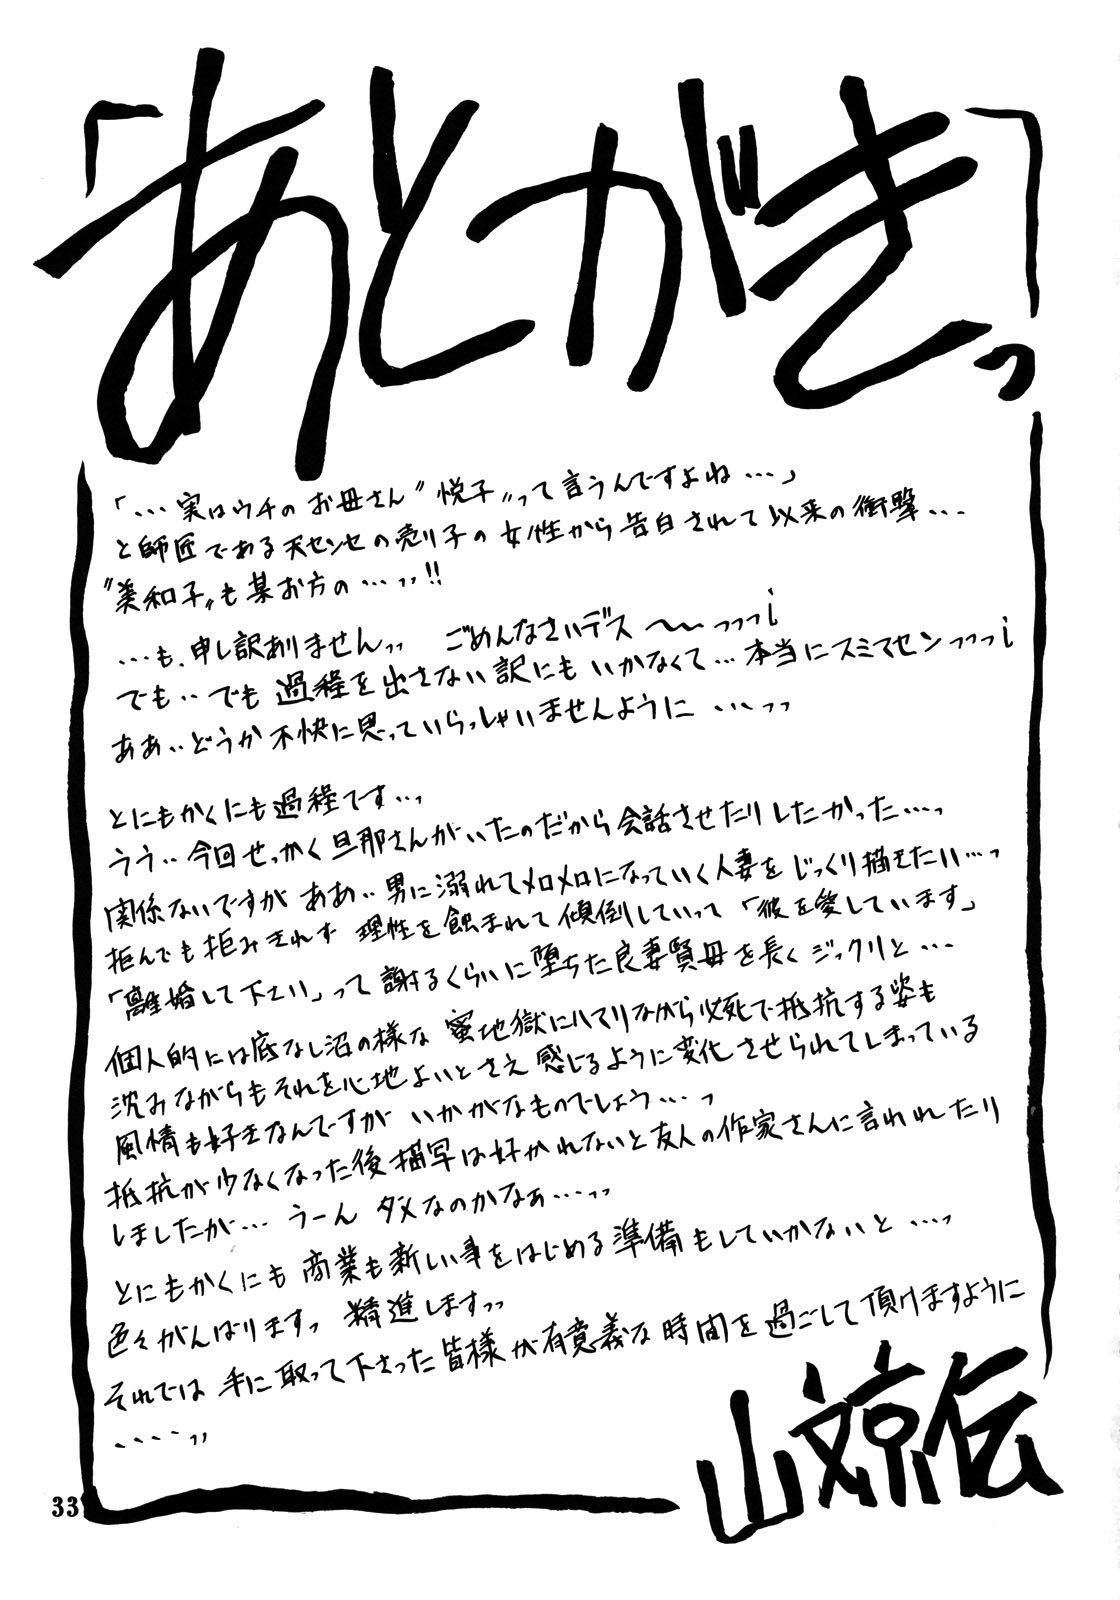 「あとがきっ」
「…実はウチのお母さん〝悦子〟って言うんですよね…」
と師匠である天センセの売り子の女性から告白されて以来の衝撃…
〝美和子〟も某お方の…ッッ!!
…も、申し訳ありませんッッ ごめんなさいデス〜〜ッッッ¡
でも‥でも過程を出さない訳にもいかなくて…本当にスミマセンッッッ¡
ああ‥どうか不快に思っていらっしゃいませんように…ッッ
とにもかくにも過程です…っ
うう‥今回せっかく旦那さんがいたのだから会話させたりしたかった…っ
関係ないですが ああ‥男に溺れてメロメロになっていく人妻をじっくり描きたい…っ
拒んでも拒みきれず 理性を蝕まれて傾倒していって「彼を愛しています」
「離婚して下さい」って謝るくらいに堕ちた良妻賢母を長くジックリと…
個人的には底なし沼の様な蜜地獄にハマりながら必死で抵抗する姿も
沈みながらもそれを心地よいとさえ感じるように変化させられてしまっている
風情も好きなんですが いかがなものでしょう…っ
抵抗が少なくなった後描写は好かれないと友人の作家さんに言われれたり
しましたが… うーん ダメなのかなぁ…ッッ
とにもかくにも 商業も新しい事をはじめる準備もしていかないと…っ
色々がんばりますっ 精進しますッッ
それでは 手に取って下さった皆様が有意義な時間を過ごして頂けますように
‥‥ッッ
山文京伝
33